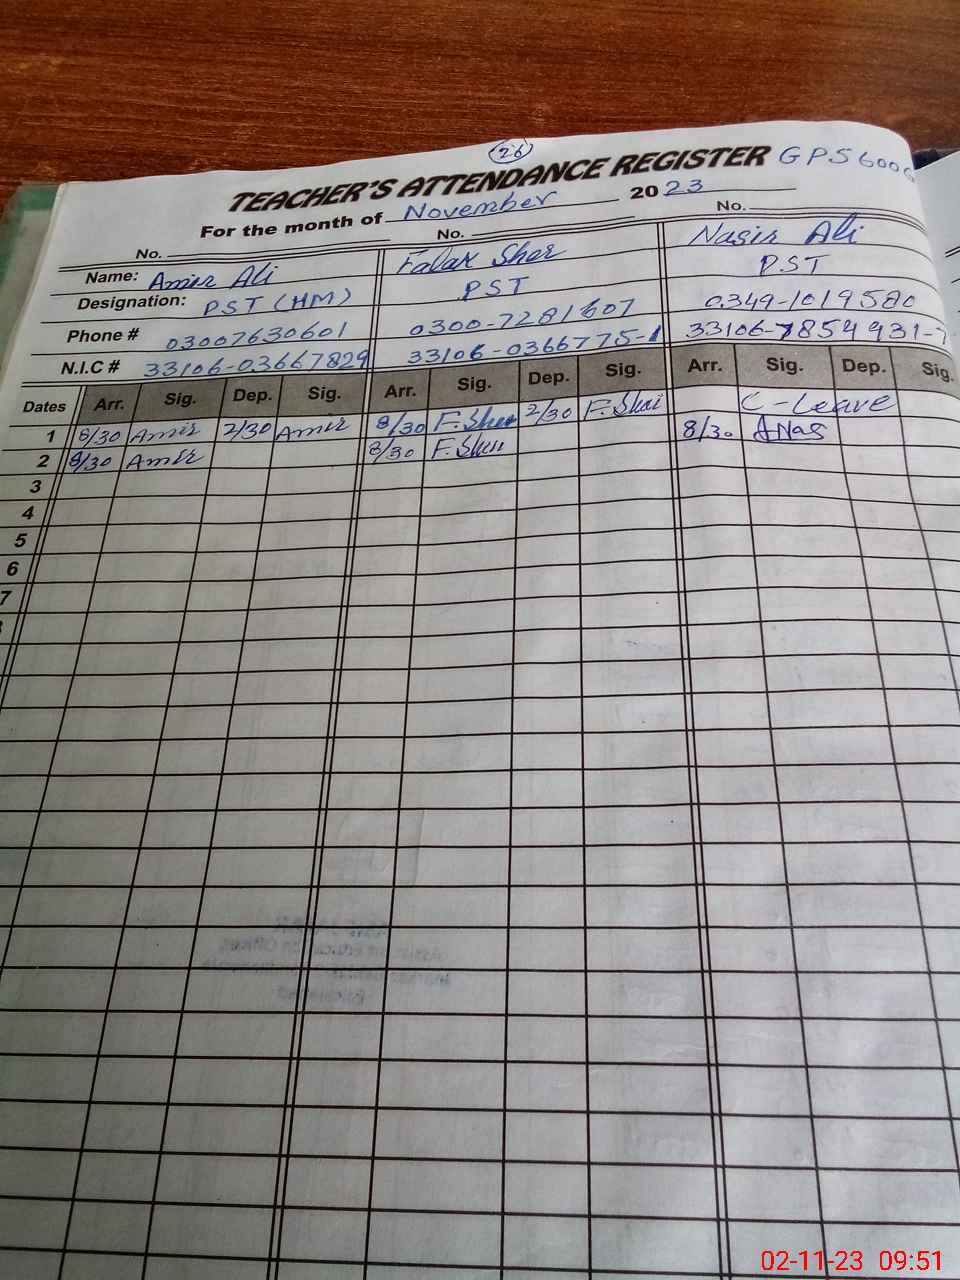 26
TEACHER'S ATTENDANCE REGISTER GPS 600 G
For the month of November 2023
No. No. No.
Name: Amir Ali Falak Sher Nasir Ali
Designation: PST (HM) PST PST
Phone # 03007630601 0300-7281607 0349-1019580
N.I.C # 33106-03667829 33106-0366775-1 33106-7854931-7
Dates Arr. Sig. Dep. Sig. Arr. Sig. Dep. Sig. Arr. Sig. Dep. Sig.
1 8/30 Amir 2/30 Amir 8/30 F.Sher 2/30 F.Sher C-Leave
2 8/30 Amir 8/30 F.Sher 8/30
3
4
5
6
7
02-11-23 09:51